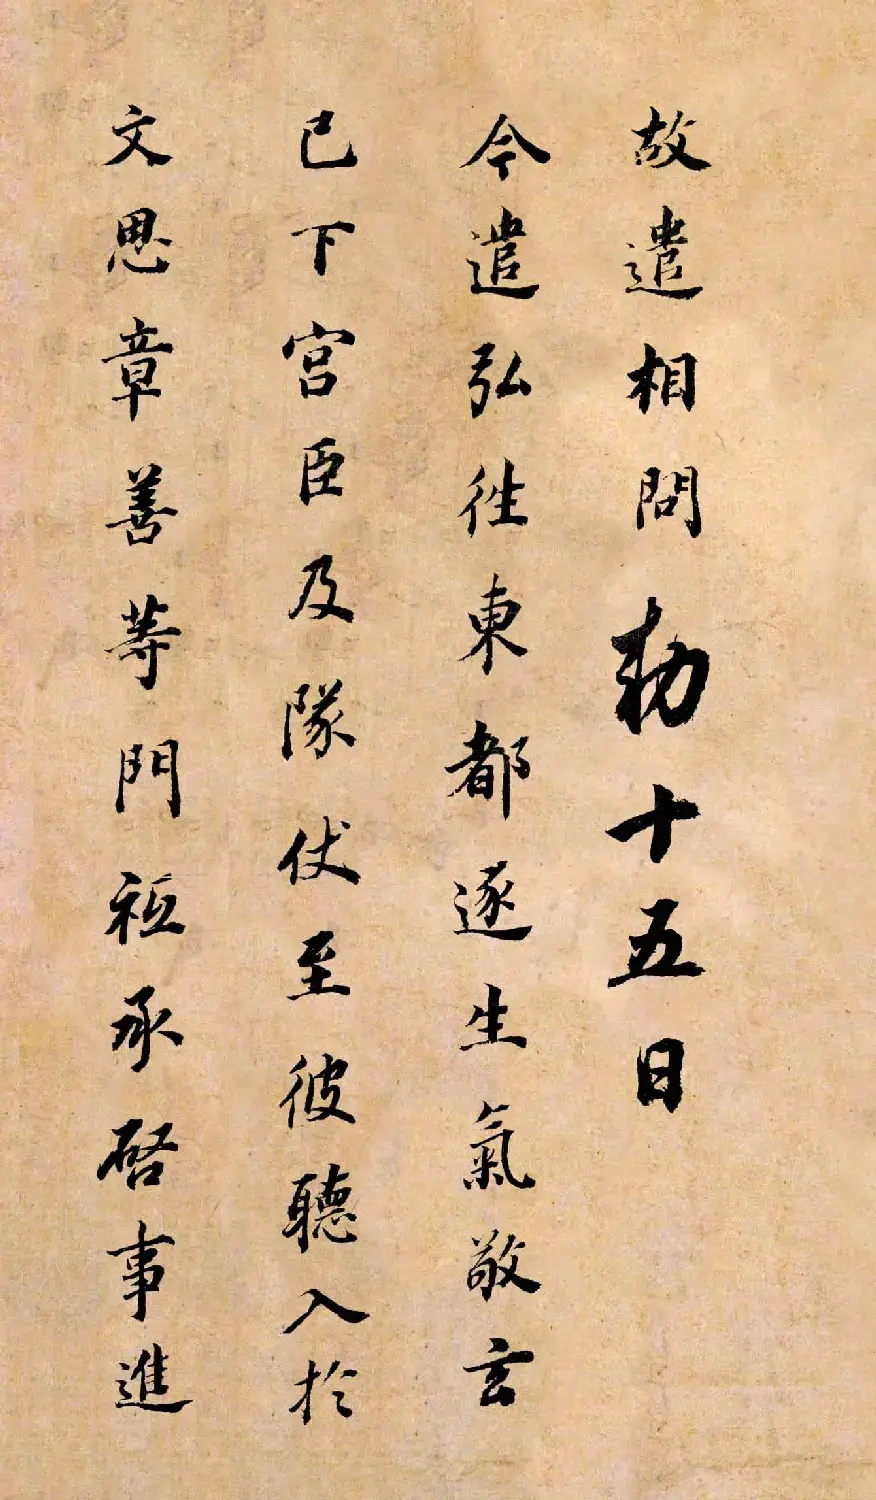 故遣相問勅十五日
今遣弘徃東都逐生氣敬玄
已下宮臣及隊仗至彼聽入於
文思章善等門祗承啓事進